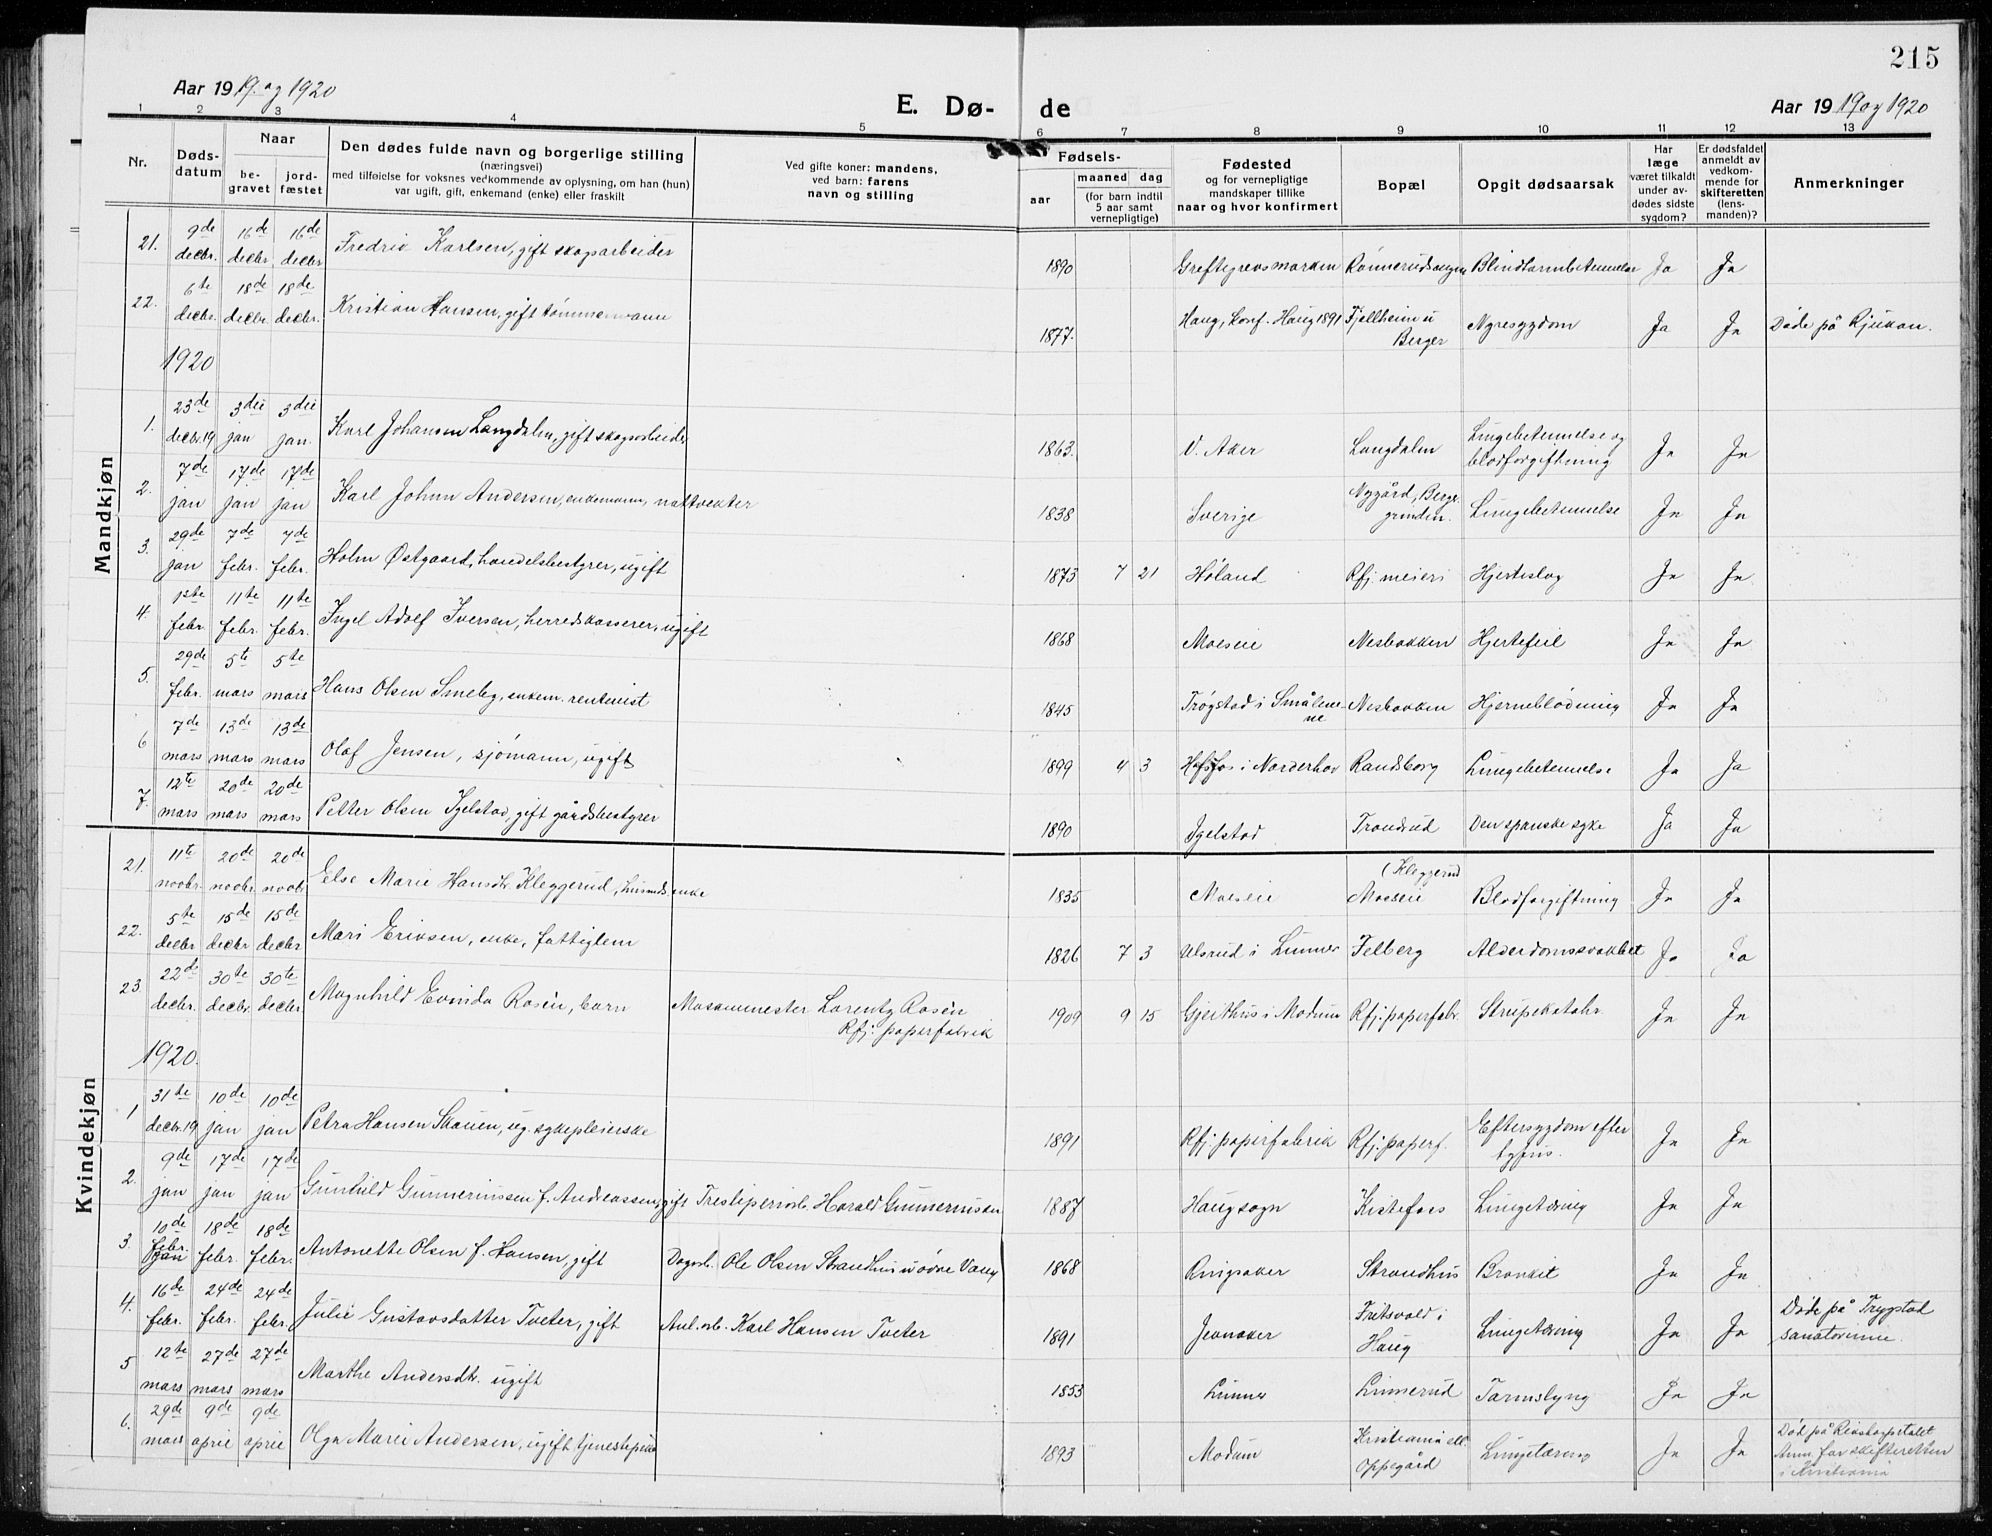 215
Aar 1919 og 1920
E. Dø- de
Aar 1919 og 1920
1 2 3 4 5 6 7 8 9 10 11 12 13
Nr.
Døds-
datum
Naar
be-
gravet
jord-
fæstet
Den dødes fulde navn og borgerlige stilling
(næringsvei)
med tilføielse for voksnes vedkommende av oplysning, om han (hun)
var ugift, gift, enkemand (enke) eller fraskilt
Ved gifte koner: mandens,
ved barn: farens
navn og stilling
Fødsels-
aar
maaned dag
(for barn indtil
5 aar samt
vernepligtige)
Fødested
og for vernepligtige
mandskaper tillike
naar og hvor konfirmert
Bopæl
Opgit dødsaarsak
Har
læge
været tilkaldt
under av-
dødes sidste
sygdom?
Er dødsfaldet
anmeldt av
vedkom-
mende for
skifteretten
(lens-
manden)?
Anmerkninger
Mandkjøn
21. 9de decbr. 16de decbr. 16de decbr. Fredrik Karlsen, gift skogsarbeider 1890 Greftegrevsmarken Rønnerudsangen Blindtarmbetennelse Ja Ja
22. 6te decbr. 18de decbr. 18de decbr. Kristian Hansen, gift tømmermann 1877. Haug, konf. Haug 1891 Fjellheim u Berger Nyresygdom Ja Ja Døde på Rjukan.
1920
1. 23de decbr. 19 3die jan 3die jan. Karl Johansen Langdalen, gift skogsarbeider 1863. V. Aker Langdalen Lungebetennelse og blodforgiftning Ja Ja
2. 7de jan 17de jan 17de jan Karl Johan Andersen, enkemann, nattvekter 1838 Sverige Nygård, Berger grinden. Lungebetennelse Ja Ja
3. 29de jan 7de febr. 7de febr. Holm Østgaard, handelsbestyrer, ugift 1873 7 21 Høland Rfj. meieri Hjerteslag Ja Ja
4. 1ste febr. 11te febr. 11te febr. Ingel Adolf Iversen, herredskasserer, ugift 1868 Moeseie Nesbakken Hjertefeil Ja Ja
5. 29de febr. 5te mars 5te mars Hans Olsen Smeby, enkem. rentenist 1845 Trøgstad i Smålenene Nesbakken Hjerneblødning Ja Ja
6 7de mars 13de mars 13de mars Olaf Jensen, sjømann, ugift 1899 4 3 Hofsfos i Norderhov Randsborg Lungebetennelse Ja Ja
7. 12te mars 20de mars 20de mars Petter Olsen Igelstad, gift gårdsbestyrer 1890 Igelstad Trondrud Den spanske syke Ja Ja
Kvindekjøn
21. 11te novbr. 20de novbr. 20de novbr Else Marie Hansdtr. Kleggerud, husmds. enke 1835 Moeseie (Kleggerud Moeseie Blodforgiftning Ja Ja
22. 5te decbr 15de decbr 15de decbr Mari Eriksen, enke, fattiglem 1826 7 3 Ulsrud i Lunner Felberg Alderdomssvakhet Ja Ja
23. 22de decbr. 30te decbr. 30te decbr. Magnhild Evinda Rosén, barn Maskinmester Lorentz Rosén Rfj. paperfabrik 1909 9 15 Gjeithus i Modum Rfj. paperfabr. Strupekatahr. Ja Ja
1920.
1 31te decbr. 19 10de jan 10de jan Petra Hansen Skauen, ug. sykepleierske 1891 Rfj. paperfabrik Rfj. paperf. Eftersygdom efter tyfus. Ja Ja
2. 9de jan 17de jan 17de jan Gunhild Gunneriussen f. Andreassen, gift Tresliperiarb. Harald Gunneriussen 1887 Haugsogn Kistefoss Lungetæring Ja Ja
3. 10de febr. jan 18de febr. 18de febr. Antonette Olsen f. Hansen, gift Dagarb. Ole Olsen Strandhus u øvre Vang 1868 Ringsaker Strandhus Bronkit Ja Ja
4. 16de febr. 24de febr. 24de febr. Julie Gustavsdatter Tveter, gift Anl.arb. Karl Hansen Tveter 1891 Jevnaker Fritsvold i Haug Lungetæring Ja Ja Døde på Trygstad sanatorium.
5 12te mars 27de mars 27de mars Marthe Andersdtr. ugift 1853 Lunner Linnerud Tarmslyng Ja Ja
6. 29de mars 9de april 9de april Olga Marie Andersen, ugift tjenestepike 1893 Modum Kristiania ell. Oppegård Lungetæring Ja Ja Død på Rikshospitalet Anm. for skifteretten i Kristiania